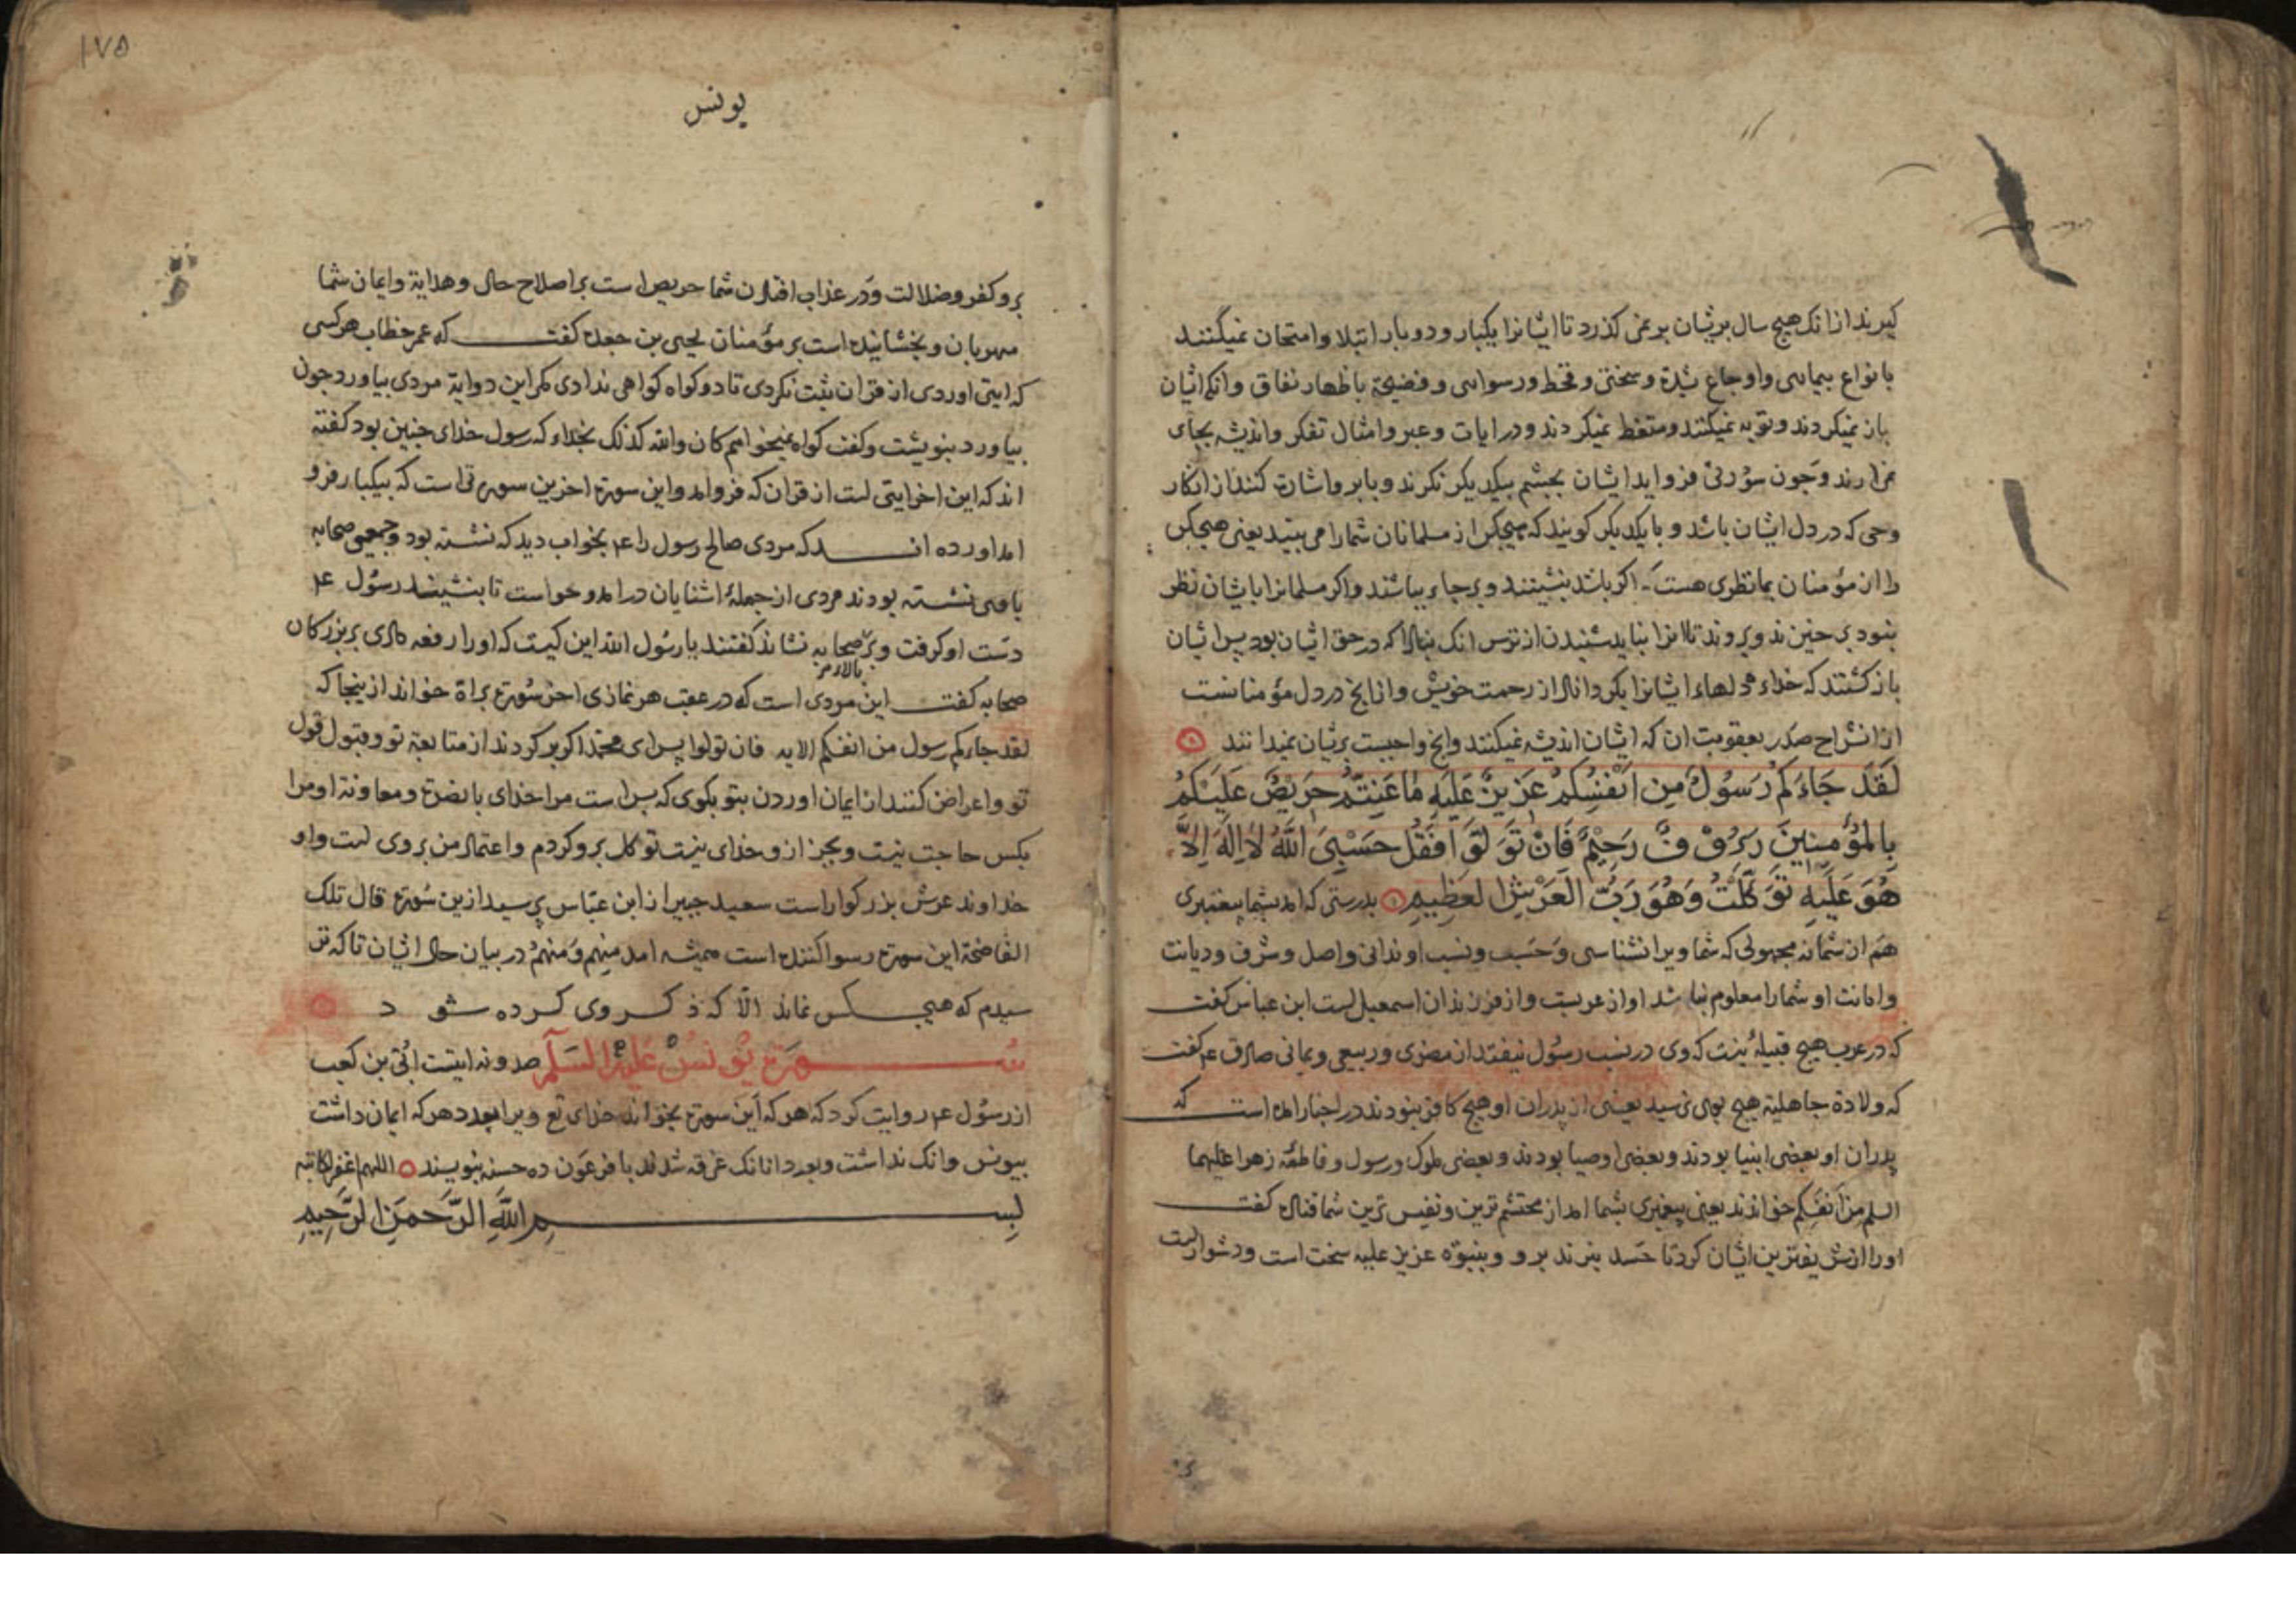 کیرند ازانک هیچ سال بریشان بر نمی کذرد تا ایشانرا یکبار و دوبار ابتلا وامتحان نمیکنند
بانواع بیماری واوجاع شدة و سختی و قحط ورسوایی و فضیحة باظهار نفاق وانکه ایشان
باز نمیکردند و توبه نمیکنند ومتعظ نمیکردند ودر ایات وعبر وامثال تفکر واندیشه بجای
نمی ارند وچون سؤرتی فرو اید ایشان بچشم بیکدیکر نکرند وبابرو اشارت کنند از انکار
وحی که در دل ایشان باشد و بایکدیکر کویند که هیچکس از مسلمانان شمارا می بیند یعنی هیچکس
را از مؤمنان بما نظری هست اکر باشد بنشینند و بر جای بباشند واکر مسلمانرا بایشان نظر
نبودی برخیزند وبروند تا انرا نباید شنیدن از ترس انک مبادا که در حق ایشان بود پس ایشان
باز کشتند که خدای دلهاء ایشانرا بکرداناد از رحمت خویش وازانچ در دل مؤمنانست
از انشراح صدر بعقوبت ان که ایشان اندیشه نمیکنند وانچ واجبست بریشان نمیدانند
لَقَدْ جَاءَكُمْ رَسُولٌ مِنْ اَنْفُسِكُمْ عَزِيزٌ عَلَيْهِ مَا عَنِتُّمْ حَرِيصٌ عَلَيْكُمْ
بِالْمُؤْمِنِينَ رَؤُوفٌ رَحِيمٌ فَاِنْ تَوَلَّوْا فَقُلْ حَسْبِيَ اللَّهُ لَا اِلَهَ اِلَّا
هُوَ عَلَيْهِ تَوَكَّلْتُ وَهُوَ رَبُّ الْعَرْشِ الْعَظِيمِ بدرستی که امد بشما پیغمبری
هم از شما نه مجهولی که شما ویرا نشناسی وحسب ونسب او ندانی واصل وشرف ودیانت
وامانت او شمارا معلوم نباشد او از عربست واز فرزندان اسمعیل است ابن عباس کفت
که در عرب هیچ قبیلهٔ نیست که وی در نسب رسول نیفتد از مضری وربیعی ویمانی صادق ع م کفت
که ولادة جاهلیة هیچ بوی نرسید یعنی از پدران او هیچ کافر نبودند در اخبار امده است که
پدران او بعضی انبیا بودند وبعضی اوصیا بودند وبعضی ملوک ورسول وفاطمه زهرا علیهما
السلم من انفَسکم خواندند یعنی پیغمبری بشما امد از محتشم ترین ونفیس ترین شما قتاده کفت
اورا از شریفترین ایشان کرد تا حسد نبرند برو وبنبوّه عزیز علیه سخت است ودشوار است
۱۷۵
یونس
برو کفر وضلالت ودر عذاب افتادن شما حریص است بر اصلاح حال وهدایة وایمان شما
مهربان وبخشاینده است بر مؤمنان یحیی بن جعده کفت که عمر خطاب هر کسی
که ایتی اوردی از قران ثبت نکردی تا دو کواه کواهی ندادی مکر این دو ایة مردی بیاورد چون
بیاورد بنوشت وکفت کواه نمیخواهم کان والله کذلک بخدای که رسول خدای چنین بود کفته
اند که این اخر ایتی است از قران که فرو امد واین سورة اخرین سوره است که بیکبار فرو
امد اورده اند که مردی صالح رسول را ع م بخواب دید که نشسته بود وجمعی صحابه
با وی نشسته بودند مردی از جملهٔ اشنایان در امد وخواست تا بنشیند رسول ع م
دست او کرفت وبر بالای صحابه نشاند کفتند یا رسول الله این کیست که اورا رفعه دادی بر بزرکان
صحابه کفت این مردی است که در عقب هر نمازی اخر سورة براة خواند از ینجا که
لقد جاءکم رسول من انفسکم الایه فان تولوا پس ای محمد اکر بر کردند از متابعة تو وقبول قول
تو واعراض کنند از ایمان اوردن بتو بکوی که بس است مرا خدای با نصرة ومعاونة او مرا
بکس حاجت نیست وبجز از و خدای نیست توکل برو کردم واعتماد من بروی است واو
خداوند عرش بزرکوار است سعید جبیر از ابن عباس پرسید ازین سورة قال تلک
الفاضحة این سورة رسوا کننده است همیشه امد منهم ومنهم در بیان حال ایشان تا که تر
سیدم که هیچ کس نماند الّا که ذکر وی کرده شود
سورة یونس علیه السلم صد ونه ایتست ابُیّ بن کعب
از رسول ع م روایت کرد که هر که این سورة بخواند خدای تع ویرا بعدد هر که ایمان داشت
بیونس وانک نداشت وبعدد انانک غرقه شدند با فرعون ده حسنه بنویسند اللهم اغفر لکاتبه
بِسمِ اللَّهِ الرَّحْمَنِ الرَّحِيمِ